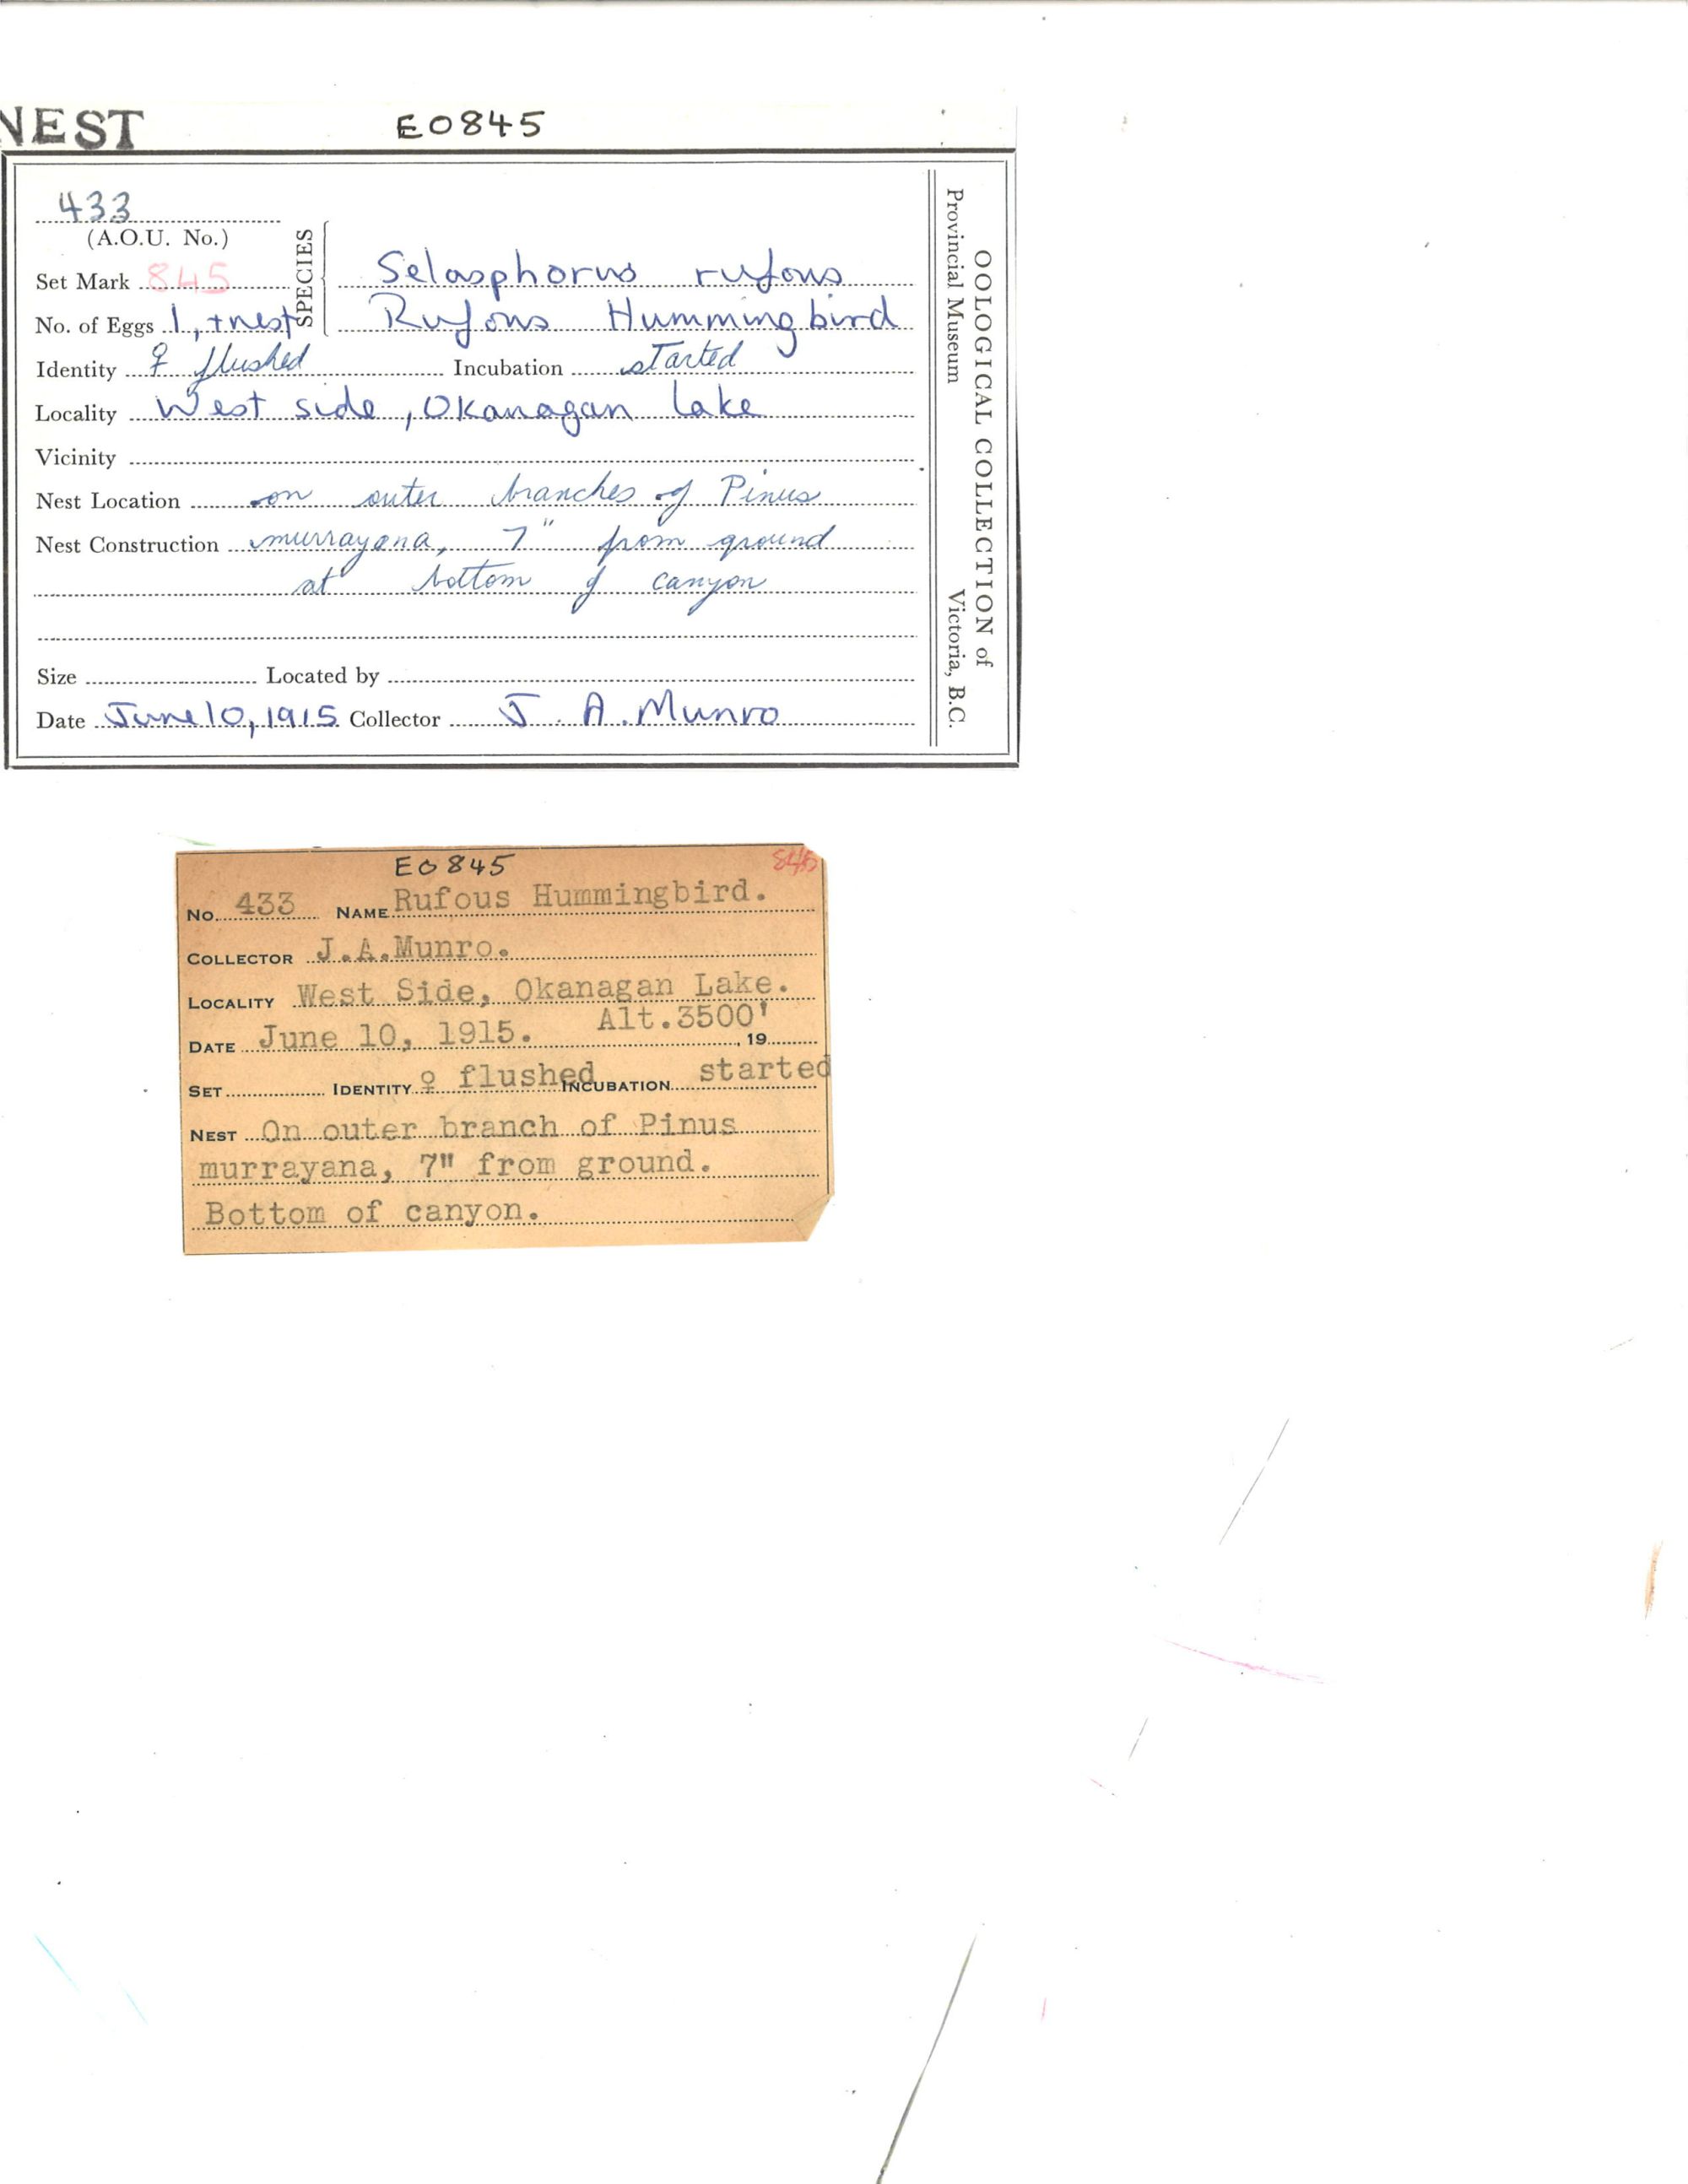 NEST E0845
433
(A.O.U. No.)
Set Mark 845
No. of Eggs 1, + nest
SPECIES
Selasphorus rufous
Rufous Hummingbird
Identity ♀ flushed Incubation started
Locality West side, Okanagan Lake
Vicinity
Nest Location on outer branches of Pinus
Nest Construction murrayana, 7" from ground
at bottom of canyon
Size Located by
Date June 10, 1915 Collector J. A. Munro
OOLOGICAL COLLECTION of
Provincial Museum Victoria, B.C.
E0845 845
No. 433 NAME Rufous Hummingbird.
COLLECTOR J.A.Munro.
LOCALITY West Side, Okanagan Lake.
Alt.3500'
DATE June 10, 1915. , 19
SET IDENTITY ♀ flushed INCUBATION started
NEST On outer branch of Pinus
murrayana, 7" from ground.
Bottom of canyon.